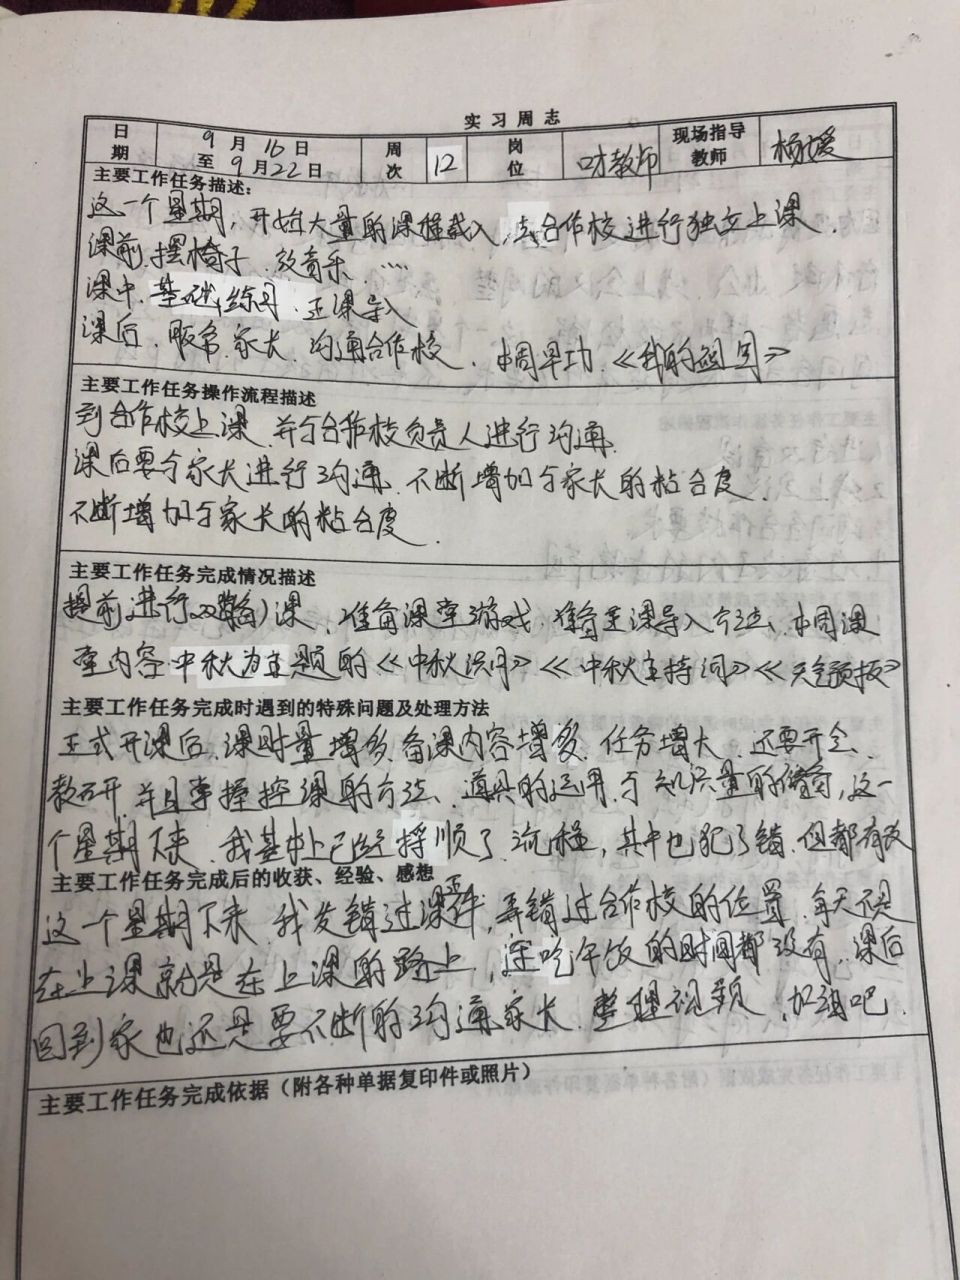 实习周志
日期 9月16日至9月22日 周次 12 岗位 口才教师 现场指导教师 杨媛
主要工作任务描述：
这一个星期，开始大量的课程载入，去合作校进行独立上课．
课前．摆椅子．放音乐．……
课中．基础练习．正课导入
课后．服务．家长．沟通合作校．本周早功．《我的祖国》
主要工作任务操作流程描述
到合作校上课．并与合作校负责人进行沟通．
课后要与家长进行沟通．不断增加与家长的粘合度．
不断增加与家长的粘合度．
主要工作任务完成情况描述
提前进行双备课．准备课堂游戏．准备正课导入方法．本周课
堂内容．中秋为主题的《中秋》《中秋主持词》《天气预报》
主要工作任务完成时遇到的特殊问题及处理方法
正式开课后．课时量增多．备课内容增多．任务增大．还要开会、
教研．并且掌握控课的方法、道具的运用．与知识量的储备，这一
个星期下来．我基本上已经捋顺了流程，其中也犯了错．但都有改
主要工作任务完成后的收获、经验、感想
这一个星期下来．我发错过课件，弄错过合作校的位置．每天不是
在上课就是在上课的路上，连吃午饭的时间都没有．课后
回到家也还是要不断的沟通家长．整理视频．加油吧．
主要工作任务完成依据（附各种单据复印件或照片）